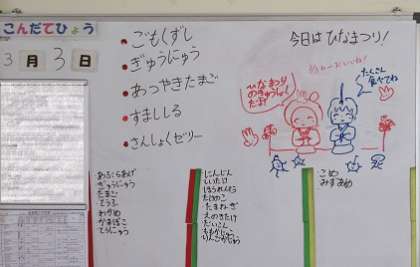 こんだてひょう
3月3日
ごもくずし
ぎゅうにゅう
あつやきたまご
すましじる
さんしょくゼリー
今日はひなまつり!
ひなまつり
のきゅうしょく
だよ
たくさん
食べてね
あぶらあげ
ぎゅうにゅう
たまご
とうふ
わかめ
かまぼこ
とうにゅう
にんじん
しいたけ
ほうれんそう
たけのこ
たまねぎ
えのきたけ
だいこん
ももかじゅう
りんごかじゅう
こめ
みずあめ